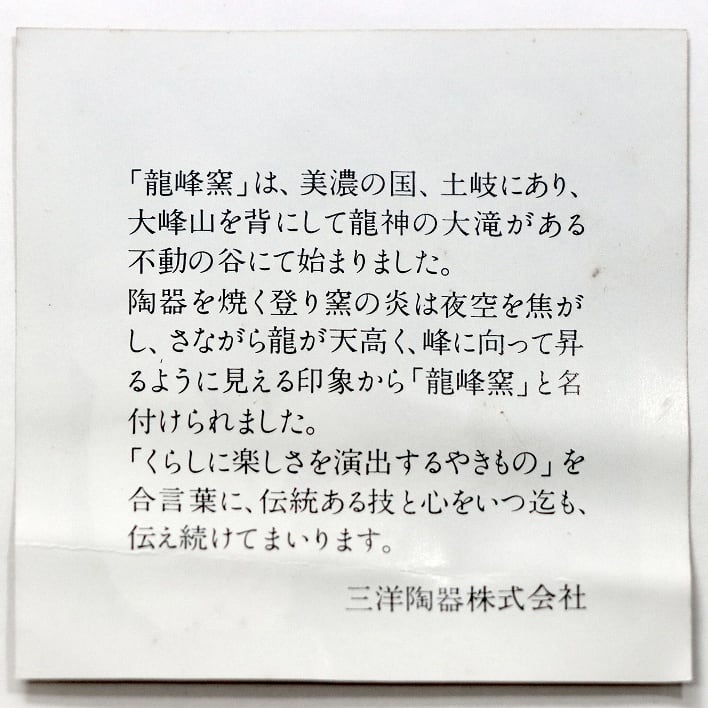 「龍峰窯」は、美濃の国、土岐にあり、
大峰山を背にして龍神の大滝がある
不動の谷にて始まりました。
陶器を焼く登り窯の炎は夜空を焦が
し、さながら龍が天高く、峰に向って昇
るように見える印象から「龍峰窯」と名
付けられました。
「くらしに楽しさを演出するやきもの」を
合言葉に、伝統ある技と心をいつ迄も、
伝え続けてまいります。
三洋陶器株式会社